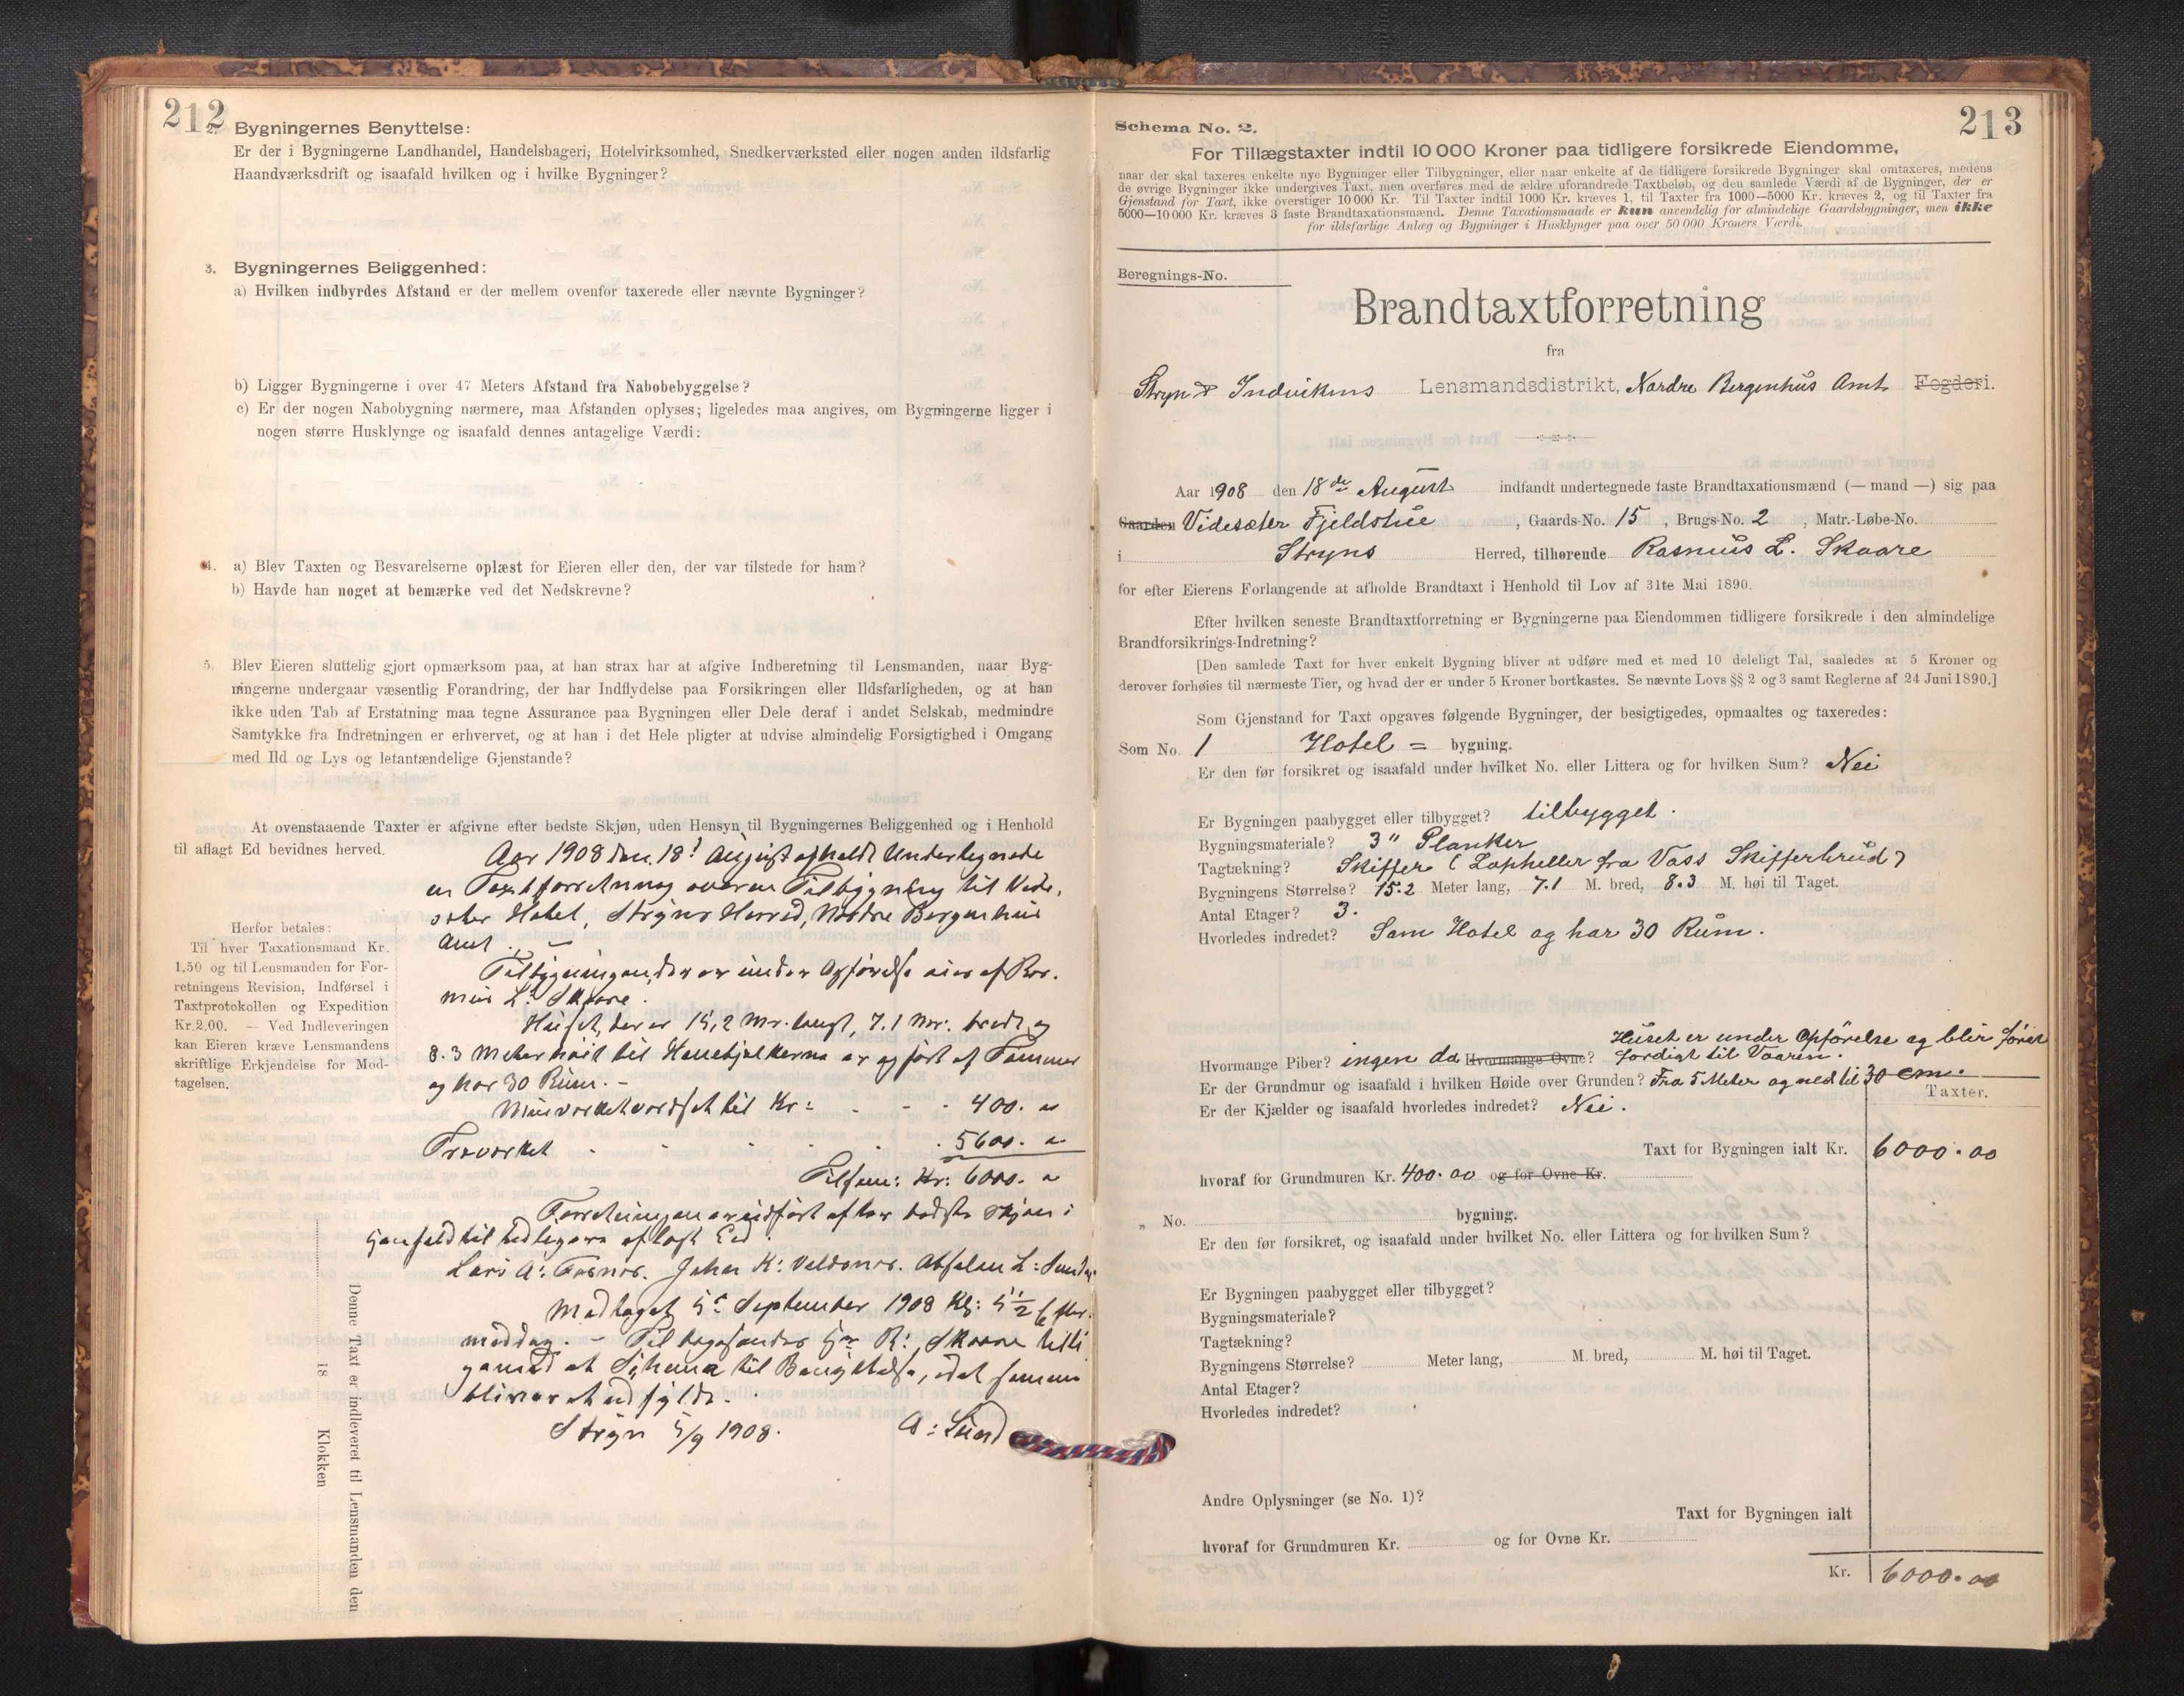 212
2. Bygningernes Benyttelse:
Er der i Bygningerne Landhandel, Handelsbageri, Hotelvirksomhed, Snedkerværksted eller nogen anden ildsfarlig
Haandværksdrift og isaafald hvilken og i hvilke Bygninger?
3. Bygningernes Beliggenhed:
a) Hvilken indbyrdes Afstand er der mellem ovenfor taxerede eller nævnte Bygninger?
b) Ligger Bygningerne i over 47 Meters Afstand fra Nabobebyggelse?
c) Er der nogen Nabobygning nærmere, maa Afstanden oplyses; ligeledes maa angives, om Bygningerne ligger i
nogen større Husklynge og isaafald dennes antagelige Værdi:
4. a) Blev Taxten og Besvarelserne oplæst for Eieren eller den, der var tilstede for ham?
b) Havde han noget at bemærke ved det Nedskrevne?
5. Blev Eieren sluttelig gjort opmærksom paa, at han strax har at afgive Indberetning til Lensmanden, naar Byg-
ningerne undergaar væsentlig Forandring, der har Indflydelse paa Forsikringen eller Ildsfarligheden, og at han
ikke uden Tab af Erstatning maa tegne Assurance paa Bygningen eller Dele deraf i andet Selskab, medmindre
Samtykke fra Indretningen er erhvervet, og at han i det Hele pligter at udvise almindelig Forsigtighed i Omgang
med Ild og Lys og letantændelige Gjenstande?
At ovenstaaende Taxter er afgivne efter bedste Skjøn, uden Hensyn til Bygningernes Beliggenhed og i Henhold
til aflagt Ed bevidnes herved.
Aar 1908 den 18. August afholdt Undertegnede
en Taxtforretning over en Tilbygning til Vide-
sæter Hotel, Stryns Herred, Nordre Bergenhus
Amt. –
Tilbygningen der er under Opførelse eies af Ras-
mus L. Skaare.
Huset, der er 15,2 Mr. langt, 7.1 Mr. bredt og
8.3 Meter høit til Hanebjelkerne er opført af Tømmer
og har 30 Rum. –
Murverket værdsat til Kr: - - - 400. "
Træverket - - - - - 5600. "
Tilsam: Kr: 6000. "
Forretningen er udført efter bedste Skjøn i
Henhold til tidligere aflagt Eed.
Lars A: Tosnes. Johan K: Valdsnes. Absalon L: Sunde
Modtaget 5te September 1908 Kl: 5 1/2 Efter-
middag. – Tilbagesendes Hr R: Skaare tilli-
gemed et Schema til Benyttelse, idet samme
bliver at udfylde.
Stryn 5/9 1908. A: Sund
Herfor betales:
Til hver Taxationsmand Kr.
1.50 og til Lensmanden for For-
retningens Revision, Indførsel i
Taxtprotokollen og Expedition
Kr. 2.00. — Ved Indleveringen
kan Eieren kræve Lensmandens
skriftlige Erkjendelse for Mod-
tagelsen.
Denne Taxt er indleveret til Lensmanden den
18 Klokken
213
Schema No. 2.
For Tillægstaxter indtil 10 000 Kroner paa tidligere forsikrede Eiendomme,
naar der skal taxeres enkelte nye Bygninger eller Tilbygninger, eller naar enkelte af de tidligere forsikrede Bygninger skal omtaxeres, medens
de øvrige Bygninger ikke undergives Taxt, men overføres med de ældre uforandrede Taxtbeløb, og den samlede Værdi af de Bygninger, der er
Gjenstand for Taxt, ikke overstiger 10 000 Kr. Til Taxter indtil 1000 Kr. kræves 1, til Taxter fra 1000—5000 Kr. kræves 2, og til Taxter fra
5000—10 000 Kr. kræves 3 faste Brandtaxationsmænd. Denne Taxationsmaade er kun anvendelig for almindelige Gaardsbygninger, men ikke
for ildsfarlige Anlæg og Bygninger i Husklynger paa over 50 000 Kroners Værdi.
Beregnings-No.
Brandtaxtforretning
fra
Stryn & Indvikens Lensmandsdistrikt, Nordre Bergenhus Amt Fogderi.
Aar 1908 den 18de August indfandt undertegnede faste Brandtaxationsmænd (— mand —) sig paa
Gaarden Videsæter Fjeldstue, Gaards-No. 15, Brugs-No. 2, Matr.-Løbe-No.
i Stryns Herred, tilhørende Rasmus L. Skaare
for efter Eierens Forlangende at afholde Brandtaxt i Henhold til Lov af 31te Mai 1890.
Efter hvilken seneste Brandtaxtforretning er Bygningerne paa Eiendommen tidligere forsikrede i den almindelige
Brandforsikrings-Indretning?
[Den samlede Taxt for hver enkelt Bygning bliver at udføre med et med 10 deleligt Tal, saaledes at 5 Kroner og
derover forhøies til nærmeste Tier, og hvad der er under 5 Kroner bortkastes. Se nævnte Lovs §§ 2 og 3 samt Reglerne af 24 Juni 1890.]
Som Gjenstand for Taxt opgaves følgende Bygninger, der besigtigedes, opmaaltes og taxeredes:
Som No. 1 Hotel = bygning.
Er den før forsikret og isaafald under hvilket No. eller Littera og for hvilken Sum? Nei
Er Bygningen paabygget eller tilbygget? tilbygget.
Bygningsmateriale? 3" Planker
Tagtækning? Skiffer (Lapheller fra Vass Skifferbrud)
Bygningens Størrelse? 15.2 Meter lang, 7.1 M. bred, 8.3 M. høi til Taget.
Antal Etager? 3.
Hvorledes indredet? Som Hotel og har 30 Rum.
Hvormange Piber? ingen da Hvormange Ovne? Huset er under Opførelse og blir først
færdigt til Vaaren.
Er der Grundmur og isaafald i hvilken Høide over Grunden? Fra 5 Meter og ned til 30 cm.
Er der Kjælder og isaafald hvorledes indredet? Nei.
Taxter.
Taxt for Bygningen ialt Kr. 6000.00
hvoraf for Grundmuren Kr. 400.00 og for Ovne Kr.
„ No. bygning.
Er den før forsikret, og isaafald under hvilket No. eller Littera og for hvilken Sum?
Er Bygningen paabygget eller tilbygget?
Bygningsmateriale?
Tagtækning?
Bygningens Størrelse? Meter lang, M. bred, M. høi til Taget.
Antal Etager?
Hvorledes indredet?
Andre Oplysninger (se No. 1)?
Taxt for Bygningen ialt
hvoraf for Grundmuren Kr. og for Ovne Kr.
Kr. 6000.00